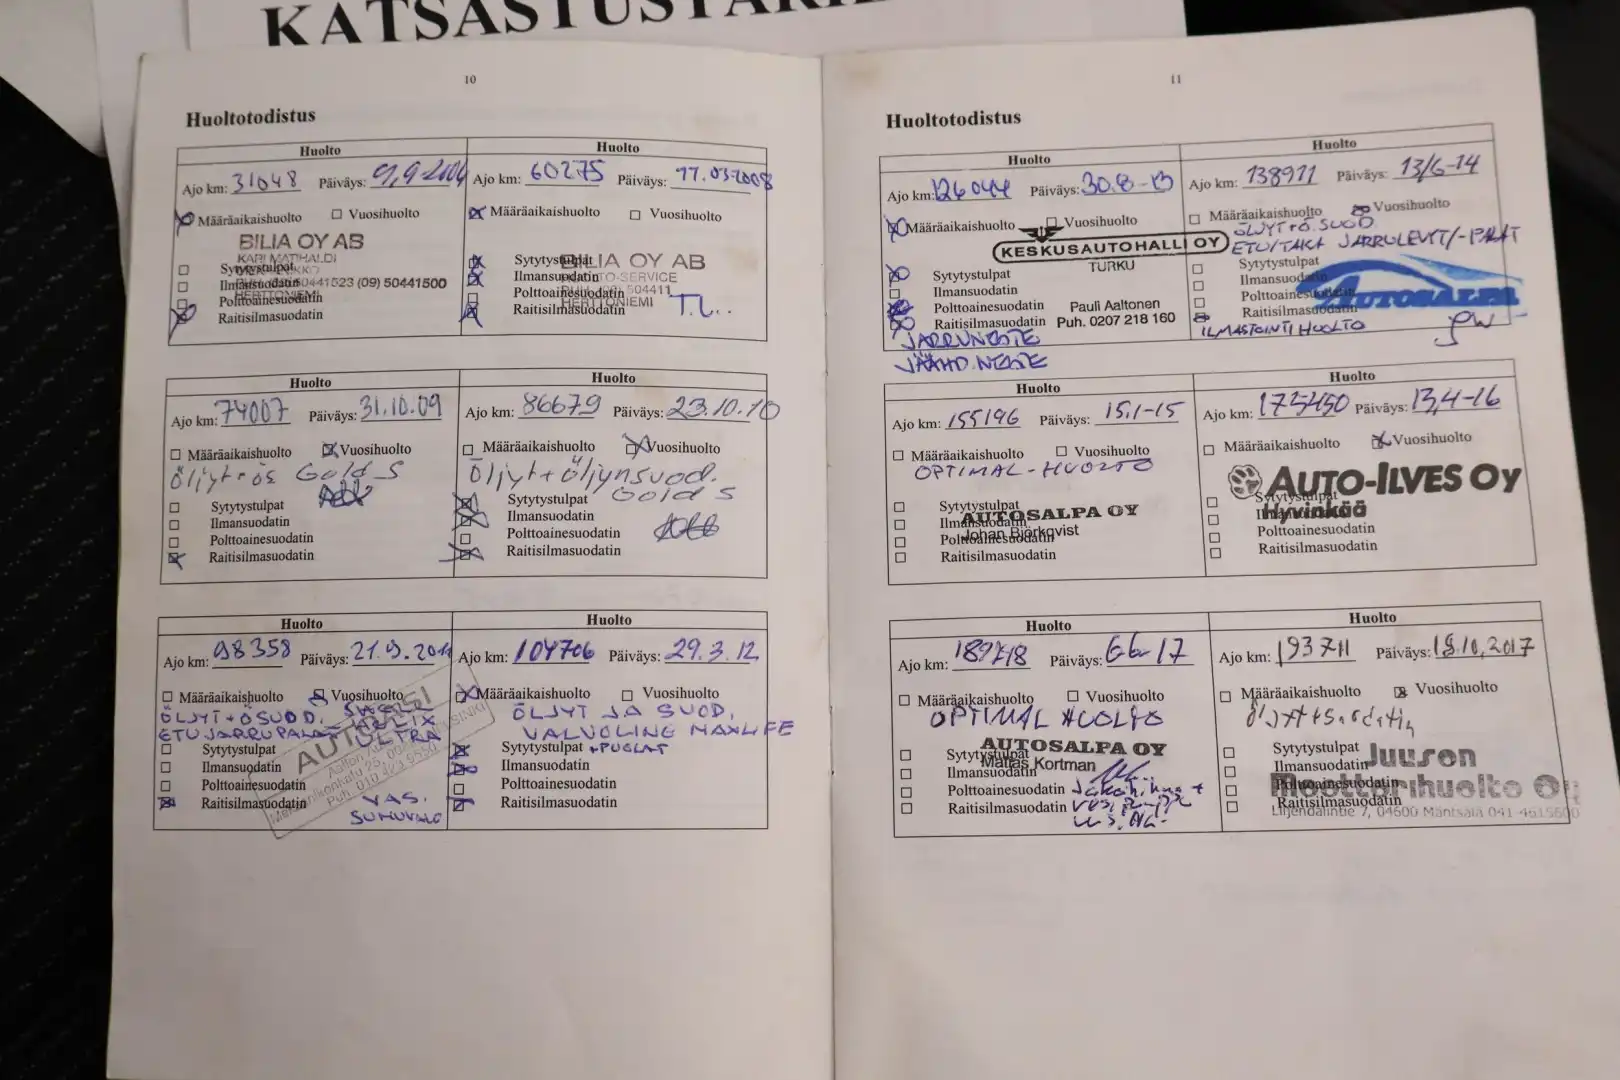 KATSASTUSTARK
10
Huoltotodistus
Huolto
Ajo km: 31048 Päiväys: 9,9-2006
Määräaikaishuolto Vuosihuolto
BILIA OY AB
KARI MATIHALDI
50441523 (09) 50441500
HERTTONIEMI
Sytytystulpat
Ilmansuodatin
Polttoainesuodatin
Raitisilmasuodatin
Huolto
Ajo km: 60275 Päiväys: 17.03.2008
Määräaikaishuolto Vuosihuolto
BILIA OY AB
AUTO-SERVICE
HERTTONIEMI
Sytytystulpat
Ilmansuodatin
Polttoainesuodatin
Raitisilmasuodatin
Huolto
Ajo km: 74007 Päiväys: 31.10.09
Määräaikaishuolto Vuosihuolto
Öljyt+ös Gold S
Sytytystulpat
Ilmansuodatin
Polttoainesuodatin
Raitisilmasuodatin
Huolto
Ajo km: 86679 Päiväys: 23.10.10
Määräaikaishuolto Vuosihuolto
Öljyt+öljynsuod.
Gold S
Sytytystulpat
Ilmansuodatin
Polttoainesuodatin
Raitisilmasuodatin
Huolto
Ajo km: 98358 Päiväys: 21.9.2011
Määräaikaishuolto Vuosihuolto
ÖLJYT+ÖSUOD. SHELL
HELIX
ETUJARRUPALAT ULTRA
Sytytystulpat
Ilmansuodatin
Polttoainesuodatin
Raitisilmasuodatin
VAS.
SUMUVALO
Huolto
Ajo km: 104706 Päiväys: 29.3.12
Määräaikaishuolto Vuosihuolto
ÖLJYT JA SUOD.
VALVOLINE MAXLIFE
Sytytystulpat
Ilmansuodatin
Polttoainesuodatin
Raitisilmasuodatin
11
Huoltotodistus
Huolto
Ajo km: 126044 Päiväys: 30.8-13
Määräaikaishuolto Vuosihuolto
KESKUSAUTOHALLI OY
TURKU
Sytytystulpat
Ilmansuodatin
Polttoainesuodatin Pauli Aaltonen
Raitisilmasuodatin Puh. 0207 218 160
JARRUNESTE
JÄÄHD.NESTE
Huolto
Ajo km: 138911 Päiväys: 13/6-14
Määräaikaishuolto Vuosihuolto
ÖLJYT+Ö.SUOD.
ETU/TAKA JARRULEVYT/-PALAT
Sytytystulpat
Ilmansuodatin
Polttoainesuodatin
AUTOSALPA
Raitisilmasuodatin
ILMASTOINTIHUOLTO
Huolto
Ajo km: 155196 Päiväys: 15.1-15
Määräaikaishuolto Vuosihuolto
OPTIMAL-HUOLTO
Sytytystulpat
AUTOSALPA OY
Ilmansuodatin
Johan Björkqvist
Polttoainesuodatin
Raitisilmasuodatin
Huolto
Ajo km: 175450 Päiväys: 13,4-16
Määräaikaishuolto Vuosihuolto
AUTO-ILVES OY
Hyvinkää
Sytytystulpat
Ilmansuodatin
Polttoainesuodatin
Raitisilmasuodatin
Huolto
Ajo km: Päiväys:
Määräaikaishuolto Vuosihuolto
OPTIMAL HUOLTO
AUTOSALPA OY
Sytytystulpat
Matias Kortman
Ilmansuodatin
Polttoainesuodatin
Raitisilmasuodatin
Huolto
Ajo km: 193711 Päiväys: 18.10.2017
Määräaikaishuolto Vuosihuolto
Sytytystulpat
Juuson
Ilmansuodatin
Moottorihuolto Oy
Polttoainesuodatin
Raitisilmasuodatin
Liljendalintie 7, 04600 Mäntsälä